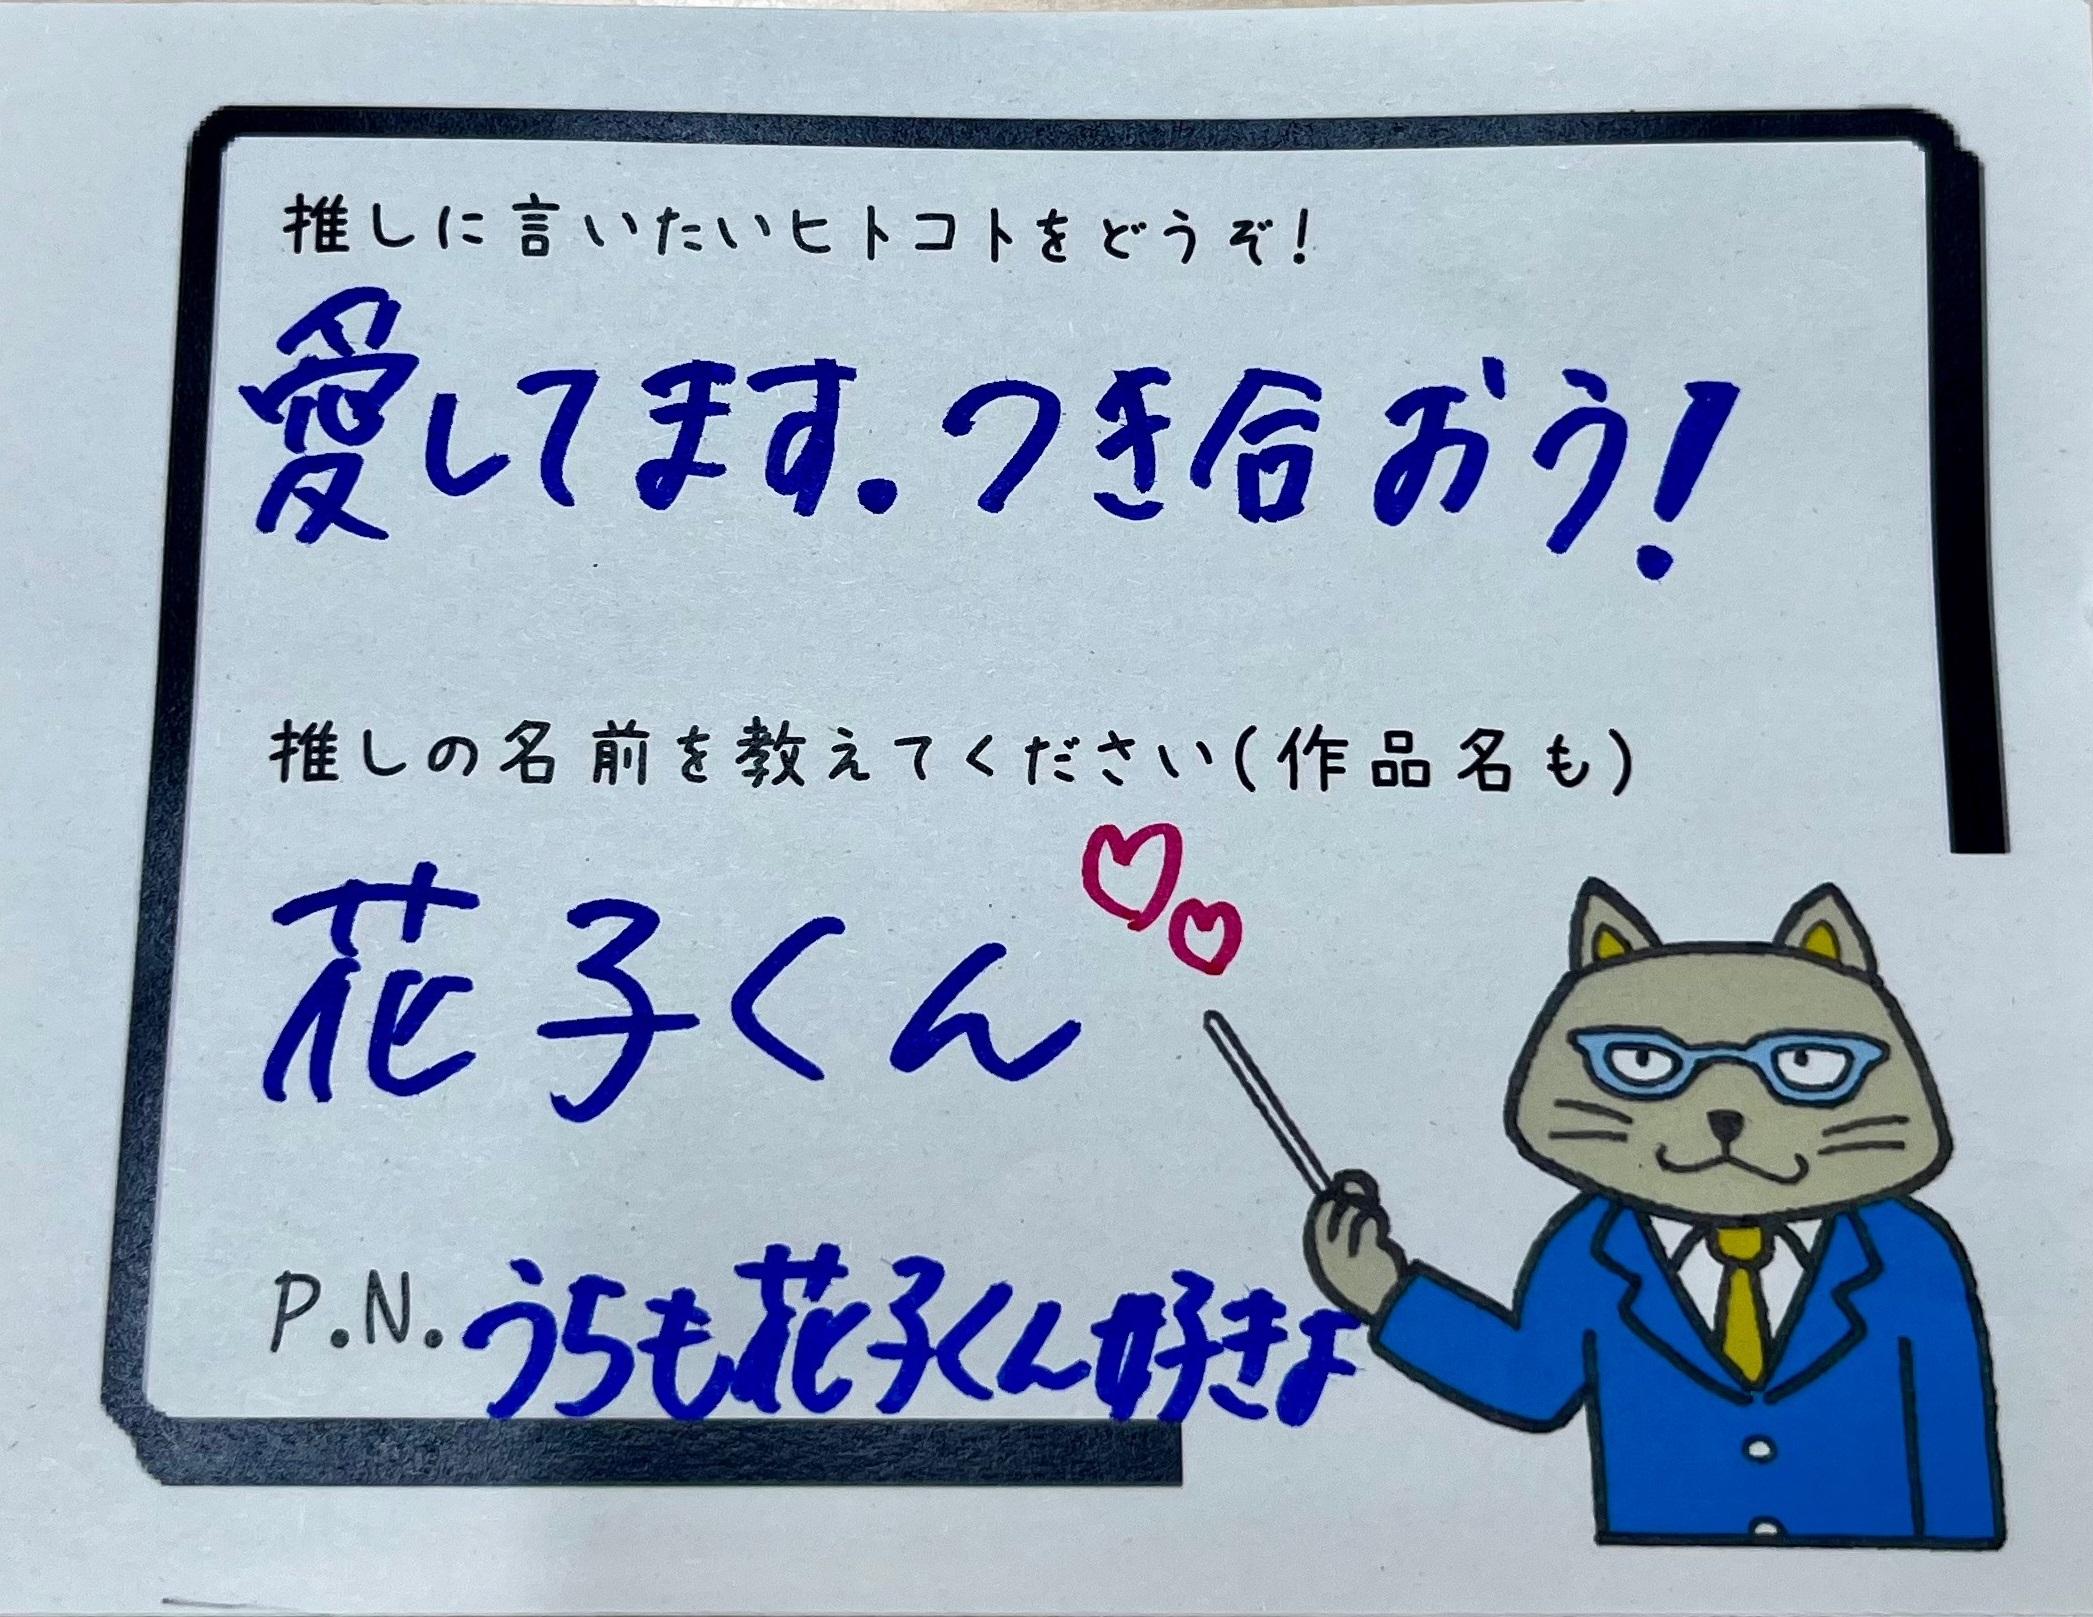 推しに言いたいヒトコトをどうぞ!
愛してます.つき合おう!
推しの名前を教えてください(作品名も)
花子くん
P.N.うちも花子くん好きよ